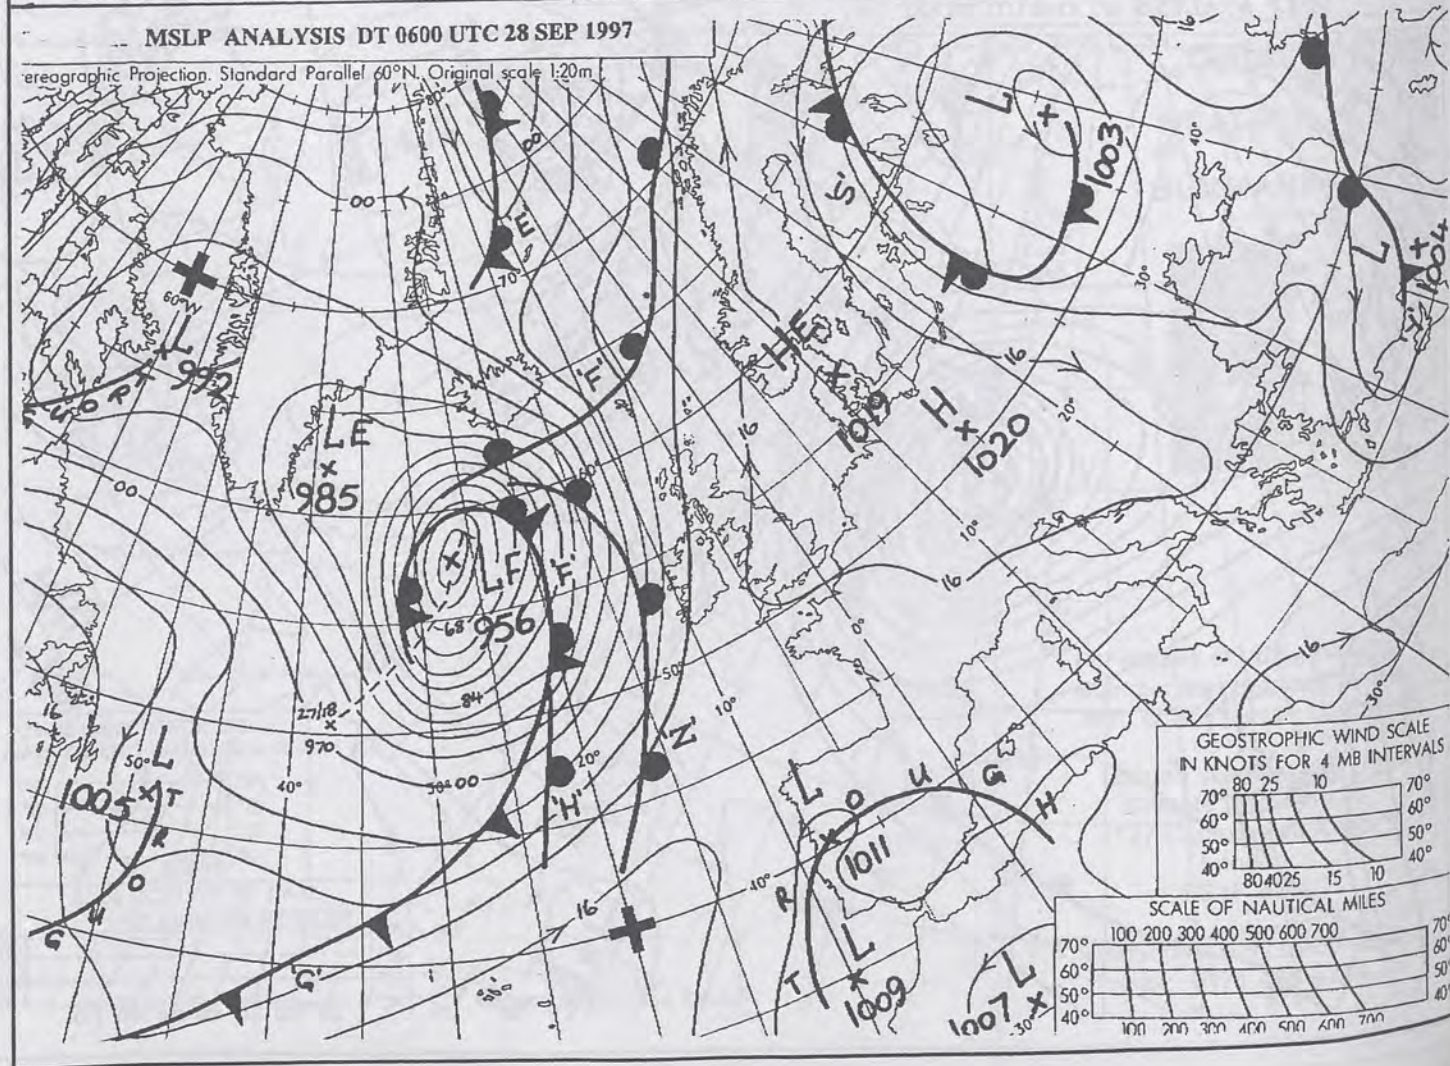 MSLP ANALYSIS DT 0600 UTC 28 SEP 1997
ereographic Projection. Standard Parallel 60°N. Original scale 1:20m
80°
00
00
'E'
70°
'S'
L
1003
40°
16
30°
L
1004
'Y'
60°W
L
992
T R O
LE
985
'F'
60°
HE
1019
H
1020
16
20°
16
10°
00
LF
956
'F'
68
84
50°
16
0°
16
27/18
970
40°
30°
00
20°
'H'
'Z'
10°
16
8
50°
L
1005
T R O U G
'G'
16
40°
L
1011
T R O U G H
L
1009
L
1007
30°
30°
GEOSTROPHIC WIND SCALE
IN KNOTS FOR 4 MB INTERVALS
80 25 10
70° 70°
60° 60°
50° 50°
40° 40°
80 40 25 15 10
SCALE OF NAUTICAL MILES
100 200 300 400 500 600 700
70° 70°
60° 60°
50° 50°
40° 40°
100 200 300 400 500 600 700